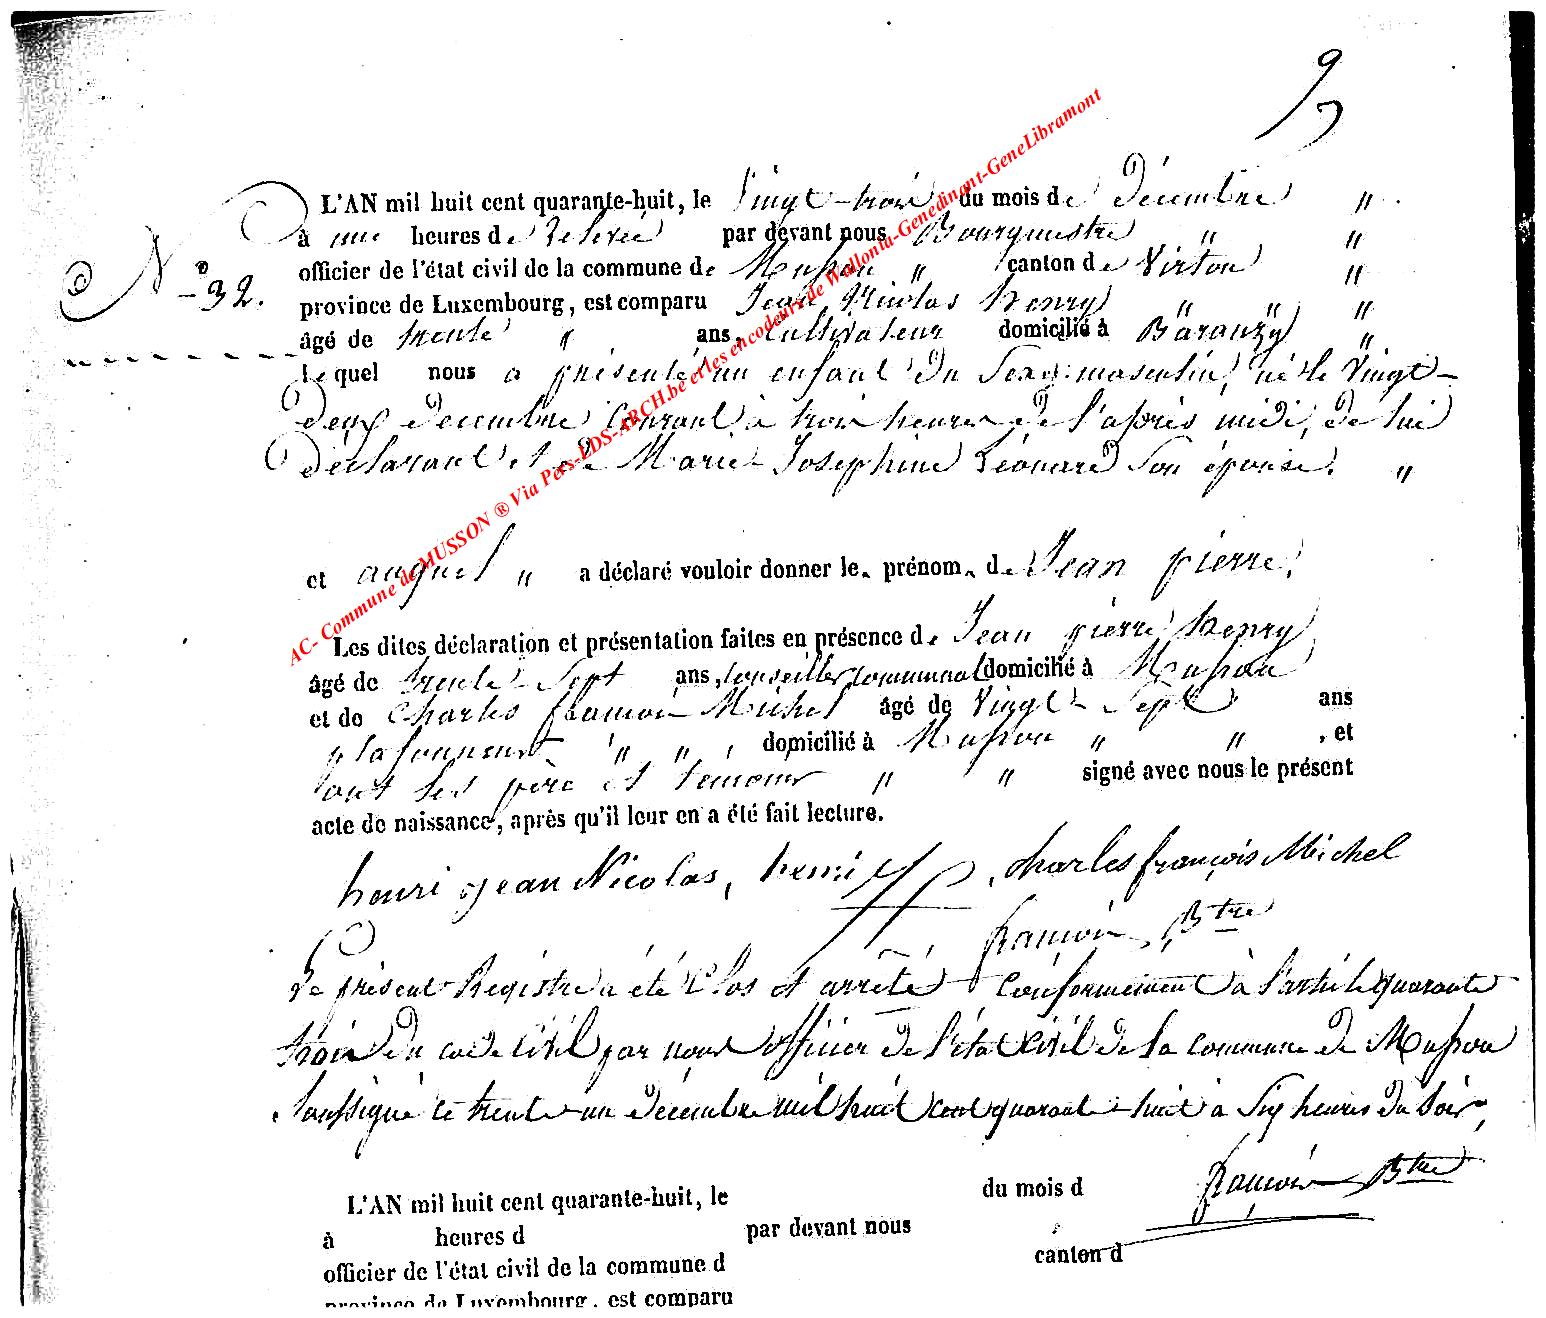 9
L'AN mil huit cent quarante-huit, le Vingt-trois du mois de Décembre "
à une heures de Relevée par devant nous Bourgmestre " "
N° 32. officier de l'état civil de la commune de Musson " canton de Virton "
province de Luxembourg, est comparu Jean Nicolas henry " " "
âgé de trente " ans, Cultivateur domicilié à Baranzy "
Lequel nous a présenté un enfant du Sexe masculin, né le Vingt-
deux decembre Courant à trois heures de l'après midi, de lui
Déclarant et de Marie Josephine Léonard Son épouse. "
et auquel " a déclaré vouloir donner le prénom de Jean pierre.
Les dites déclaration et présentation faites en présence de Jean pierre henry
âgé de trente-Sept ans, Conseiller Communal domicilié à Musson
et de Charles françois Michel âgé de Vingt-Sept ans
plafonneur " " , domicilié à Musson " " , et
ont les père et témoins " " signé avec nous le présent
acte de naissance, après qu'il leur en a été fait lecture.
henri Jean Nicolas, henri . charles françois Michel
françois Btre
Le présent Registre a été Clos et arrêté Conformément à l'article quarante
trois du code Civil par nous officier de l'état Civil de la commune de Musson
Soussigné le trente-un décembre mil huit cent quarante-huit à Six heures du Soir,
françois Btre
L'AN mil huit cent quarante-huit, le du mois d
à heures d par devant nous
officier de l'état civil de la commune d canton d
province de Luxembourg, est comparu
AC- Commune de MUSSON ® Via Pers-LDS-ARCH.be et les encodeurs de Wallonia-Genedinant-GeneLibramont